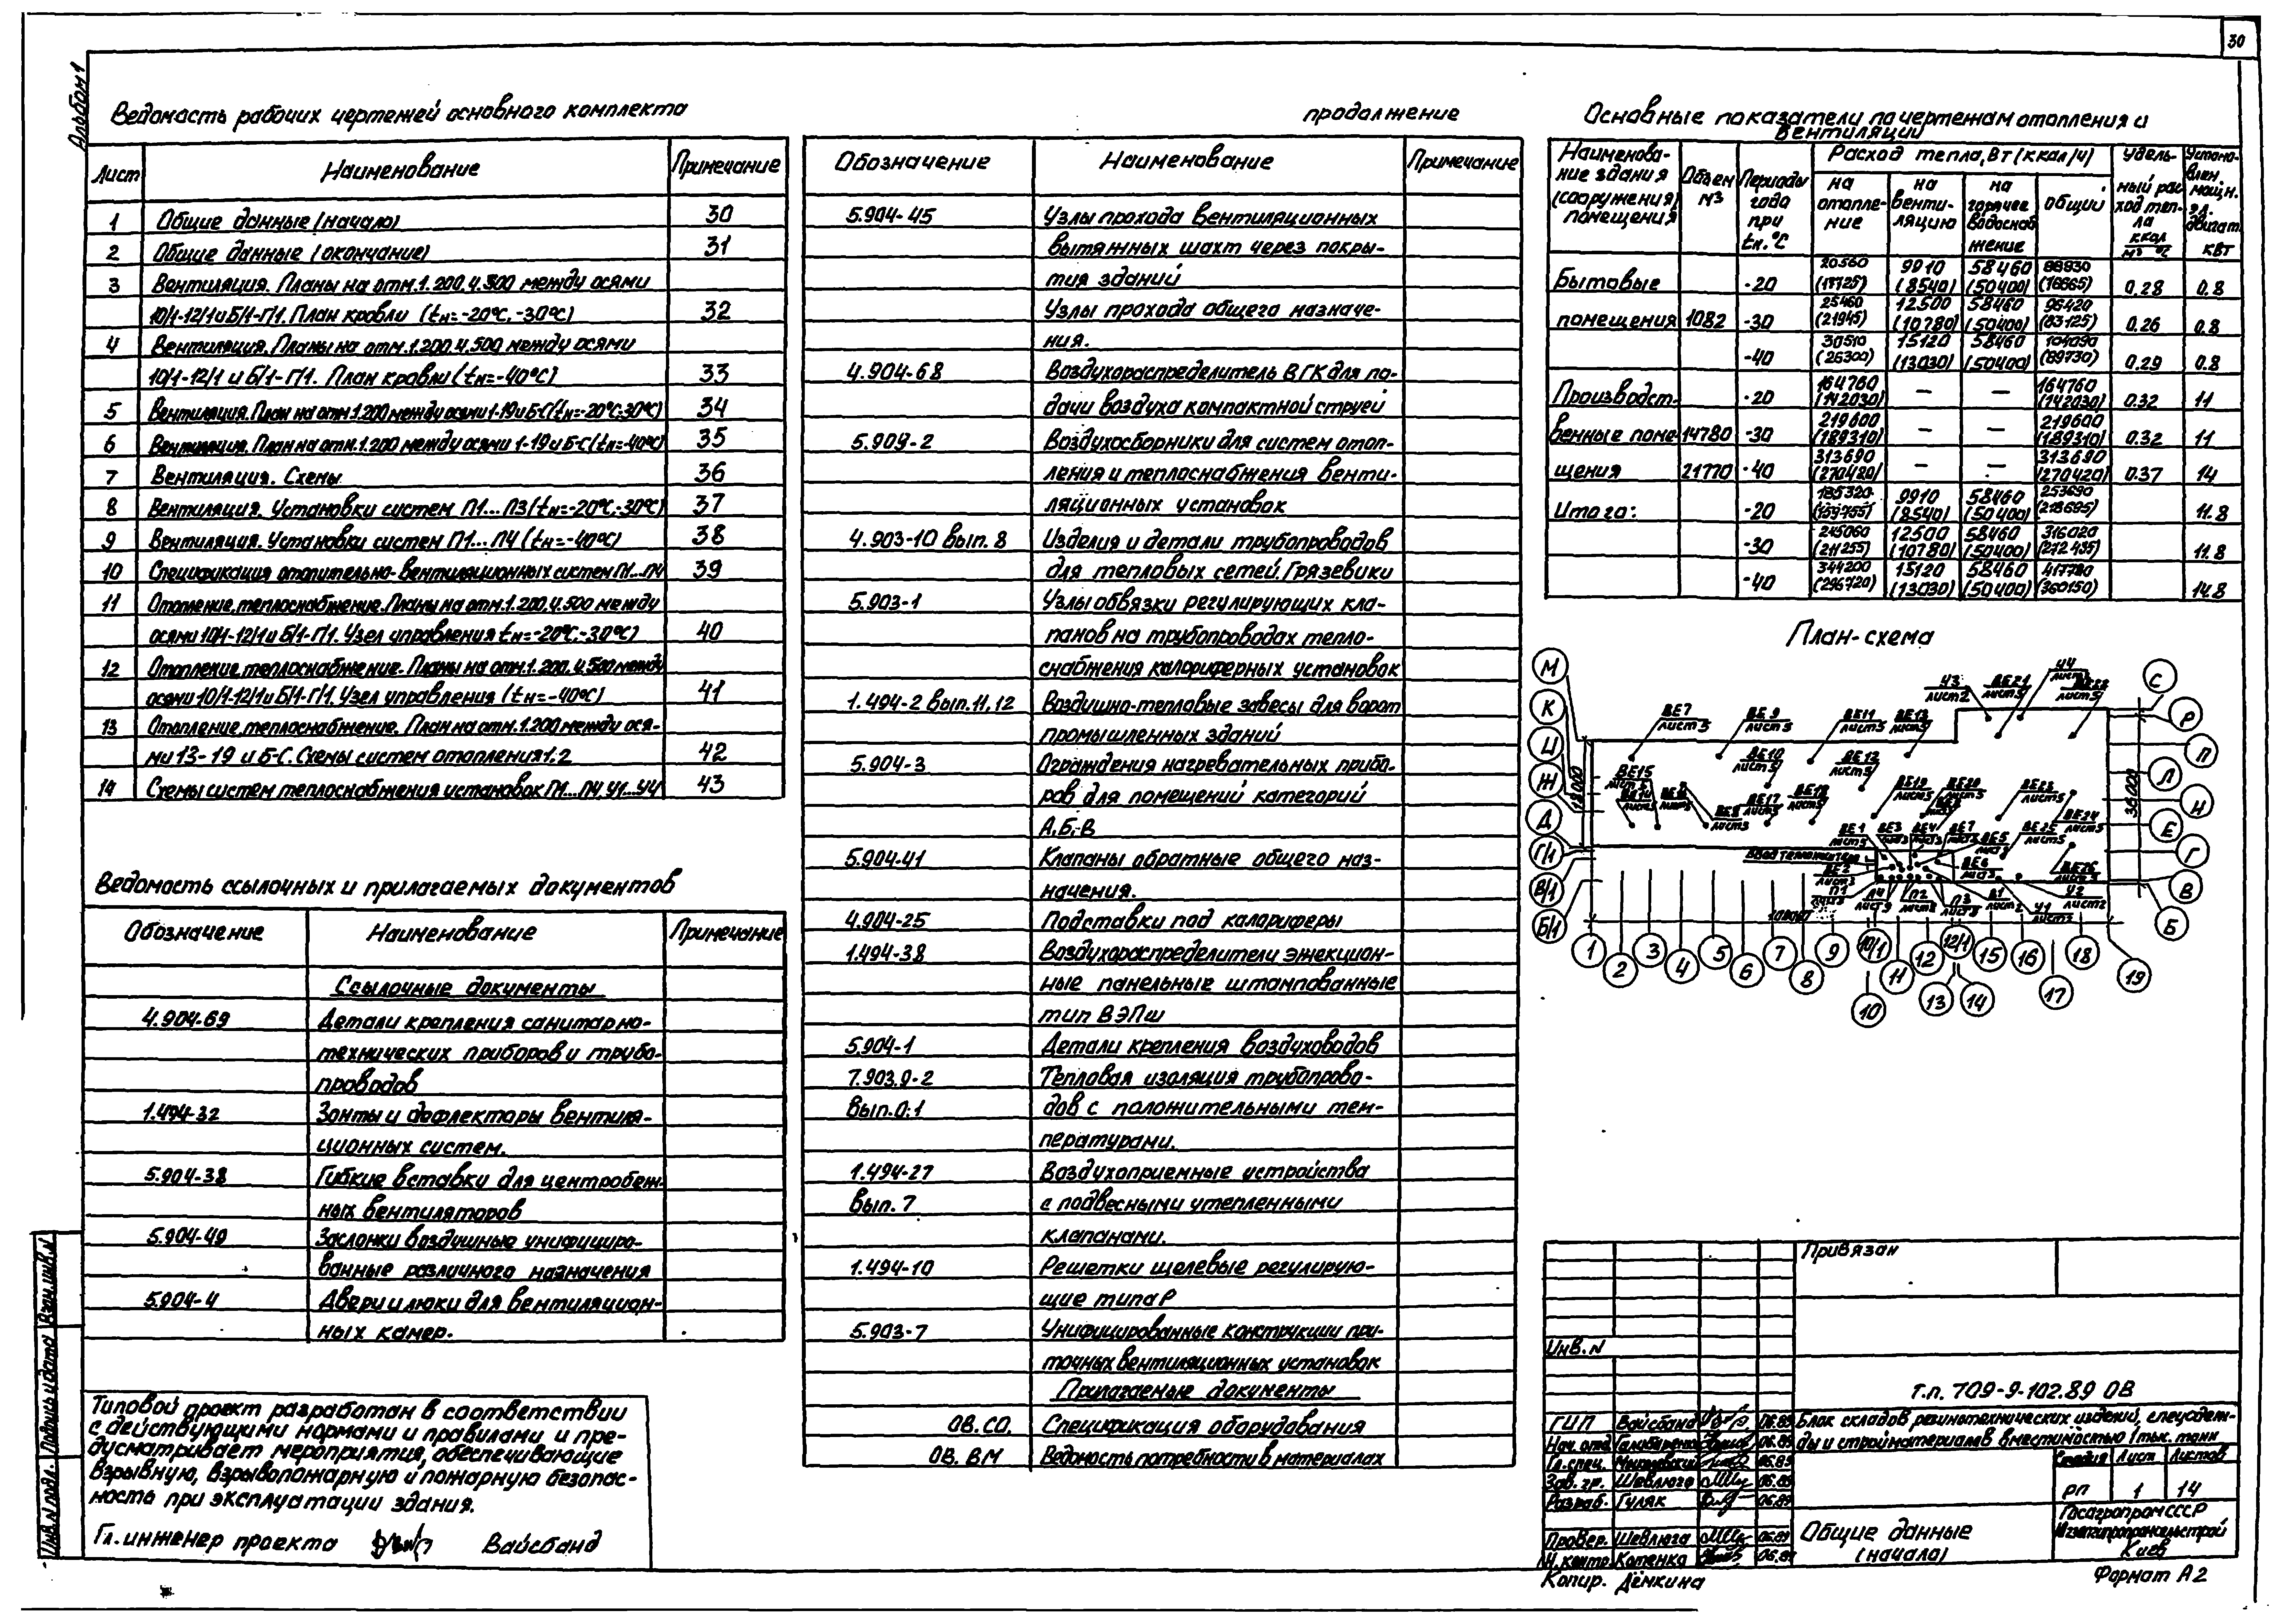 30
Альбом 1
Ведомость рабочих чертежей основного комплекта
Лист Наименование Примечание
1 Общие данные (начало) 30
2 Общие данные (окончание) 31
3 Вентиляция. Планы на отм. 1.200, 4.500 между осями
10/1-12/1 и Б/1-Г/1. План кровли (tн=-20°С, -30°С) 32
4 Вентиляция. Планы на отм. 1.200, 4.500 между осями
10/1-12/1 и Б/1-Г/1. План кровли (tн=-40°С) 33
5 Вентиляция. План на отм. 1.200 между осями 1-19 и Б-С (tн=-20°С-30°С) 34
6 Вентиляция. План на отм. 1.200 между осями 1-19 и Б-С (tн=-40°С) 35
7 Вентиляция. Схемы 36
8 Вентиляция. Установки систем П1...П3 (tн=-20°С,-30°С) 37
9 Вентиляция. Установки систем П1...П4 (tн=-40°С) 38
10 Спецификация отопительно-вентиляционных систем П1...П4 39
11 Отопление, теплоснабжение. Планы на отм. 1.200, 4.500 между
осями 10/1-12/1 и Б/1-Г/1. Узел управления tн=-20°С,-30°С) 40
12 Отопление, теплоснабжение. Планы на отм. 1.200, 4.500 между
осями 10/1-12/1 и Б/1-Г/1. Узел управления (tн=-40°С) 41
13 Отопление, теплоснабжение. План на отм. 1.200 между ося-
ми 13-19 и Б-С. Схемы систем отопления 1,2 42
14 Схемы систем теплоснабжения установок П1...П4, У1...У4 43
Ведомость ссылочных и прилагаемых документов
Обозначение Наименование Примечание
Ссылочные документы
4.904-69 Детали крепления санитарно-
технических приборов и трубо-
проводов
1.494-32 Зонты и дефлекторы вентиля-
ционных систем.
5.904-38 Гибкие вставки для центробеж-
ных вентиляторов
5.904-49 Заслонки воздушные унифициро-
ванные различного назначения
5.904-4 Двери и люки для вентиляцион-
ных камер.
Типовой проект разработан в соответствии
с действующими нормами и правилами и пре-
дусматривает мероприятия, обеспечивающие
взрывную, взрывопожарную и пожарную безопас-
ность при эксплуатации здания.
Гл. инженер проекта Вайсбанд
Инв. N подл. Подпись и дата Взам. инв. N
продолжение
Обозначение Наименование Примечание
5.904-45 Узлы прохода вентиляционных
вытяжных шахт через покры-
тия зданий
Узлы прохода общего назначе-
ния.
4.904-68 Воздухораспределитель ВГК для по-
дачи воздуха компактной струей
5.909-2 Воздухосборники для систем отоп-
ления и теплоснабжения венти-
ляционных установок
4.903-10 вып. 8 Изделия и детали трубопроводов
для тепловых сетей. Грязевики
5.903-1 Узлы обвязки регулирующих кла-
панов на трубопроводах тепло-
снабжения калориферных установок
1.494-2 вып. 11, 12 Воздушно-тепловые завесы для ворот
промышленных зданий
5.904-3 Ограждения нагревательных прибо-
ров для помещений категорий
А, Б, В
5.904-41 Клапаны обратные общего наз-
начения.
4.904-25 Подставки под калориферы
1.494-38 Воздухораспределители эжекцион-
ные панельные штампованные
тип ВЭПш
5.904-1 Детали крепления воздуховодов
7.903.9-2 Тепловая изоляция трубопрово-
Вып. 0.1 дов с положительными тем-
пературами.
1.494-27 Воздухоприемные устройства
вып. 7 с подвесными утепленными
клапанами.
1.494-10 Решетки щелевые регулирую-
щие типа Р
5.903-7 Унифицированные конструкции при-
точных вентиляционных установок
Прилагаемые документы
ОВ.СО. Спецификация оборудования
ОВ. ВМ Ведомость потребности в материалах
Основные показатели по чертежам отопления и
вентиляции
Наименова-
ние здания
(сооружения)
помещения
Объем
м3
Периоды
года
при
tн.°С
Расход тепла, Вт (ккал/ч)
на
отопле-
ние
на
венти-
ляцию
на
горячее
водоснаб
жение
общий
Удель-
ный рас
ход теп-
ла
ккал
м³ °С
Установ-
влен.
мощн.
эл.
двигат.
кВт
Бытовые -20 20560 (17725) 9910 (8540) 58460 (50400) 88930 (76665) 0.28 0.8
помещения 1082 -30 25460 (21945) 12500 (10780) 58460 (50400) 96420 (83125) 0.26 0.8
-40 30510 (26300) 15120 (13030) 58460 (50400) 104090 (89730) 0.29 0.8
Производст- -20 164760 (142030) — — 164760 (142030) 0.32 11
венные поме- 14780 -30 219600 (189310) — — 219600 (189310) 0.32 11
щения 21770 -40 313690 (270420) — — 313690 (270420) 0.37 14
Итого: -20 185320 (159755) 9910 (8540) 58460 (50400) 253690 (218695) 11.8
-30 245060 (211255) 12500 (10780) 58460 (50400) 316020 (272435) 11.8
-40 344200 (296720) 15120 (13030) 58460 (50400) 417780 (360150) 14.8
План-схема
М К И Ж Д Г/1 В/1 Б/1
С Р П Л Н Е Г В Б
У3 лист 2
ВЕ21 лист 5
У4
ВЕ7 лист 5
ВЕ9 лист 5
ВЕ11 лист 5
ВЕ13 лист 5
ВЕ10 лист 5
ВЕ12 лист 5
ВЕ15 лист 5
ВЕ17 лист 5
ВЕ18 лист 5
ВЕ19 лист 5
ВЕ20 лист 5
ВЕ23 лист 5
ВЕ24 лист 5
ВЕ25 лист 5
ВЕ26 лист 5
ВЕ1 лист 3
ВЕ3
ВЕ4
ВЕ5
ВЕ6 лист 3
ВЕ2 лист 3
Ввод теплоносителя
П1
П4 лист 9
П2 лист 8
П3 лист 8
В1 лист 2
У1 лист 2
У2 лист 2
36000
1 2 3 4 5 6 7 8 9 10/1 10 11 12 12/1 13 14 15 16 17 18 19
Привязан
Инв. N
т.п. 709-9-102.89 ОВ
ГИП Вайсбанд 06.89
Нач. отд. 06.89
Гл. спец. 06.89
Зав. гр. Шевлюга 06.89
Разраб. Гуляк 06.89
Провер. Шевлюга 06.89
Н. контр. Котенко 06.89
Блок складов резинотехнических изделий, спецодеж-
ды и стройматериалов вместимостью 1 тыс. тонн
Стадия Лист Листов
РП 1 14
Общие данные
(начало)
Госагропром СССР
Киев
Копир. Дёмкина
Формат А2